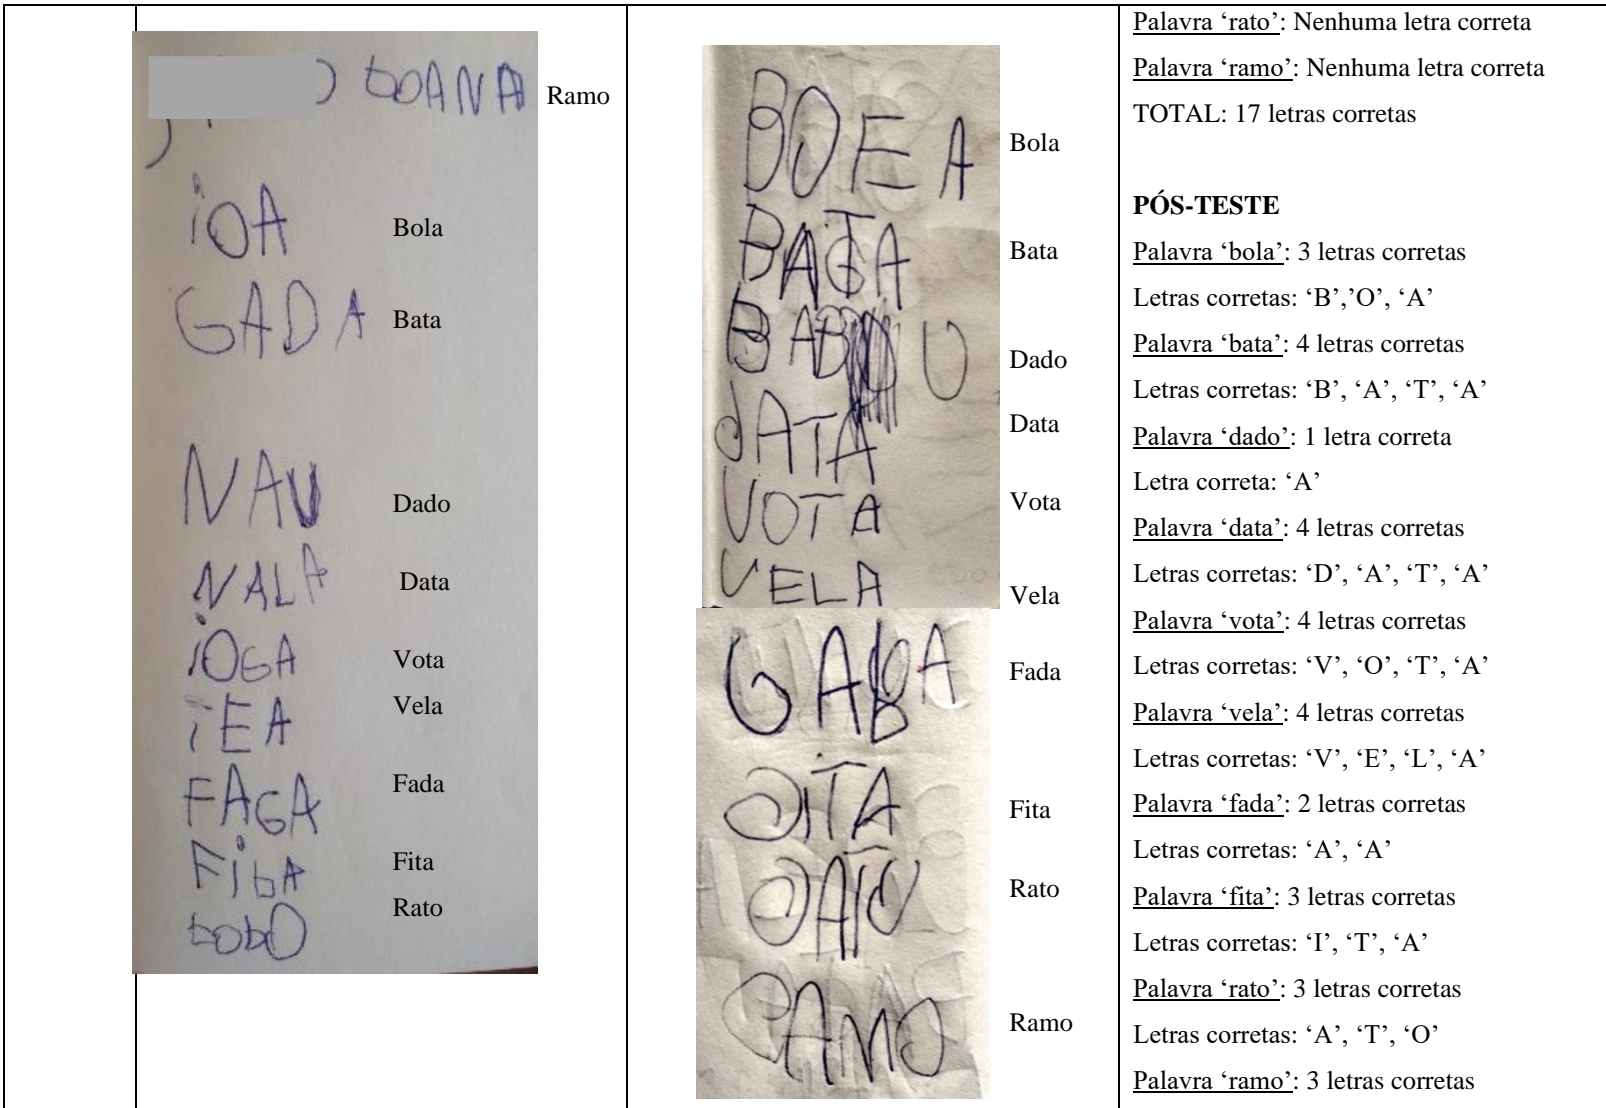 toANA Ramo
iOA Bola
GADA Bata
NAU Dado
NALA Data
iOGA Vota
iEA Vela
FAGA Fada
FibA Fita
tobO Rato
BOEA Bola
BATA Bata
BABU Dado
dATA Data
VOTA Vota
VELA Vela
GABA Fada
OiTA Fita
OATO Rato
CAMO Ramo
Palavra ‘rato’: Nenhuma letra correta
Palavra ‘ramo’: Nenhuma letra correta
TOTAL: 17 letras corretas
PÓS-TESTE
Palavra ‘bola’: 3 letras corretas
Letras corretas: ‘B’,’O’, ‘A’
Palavra ‘bata’: 4 letras corretas
Letras corretas: ‘B’, ‘A’, ‘T’, ‘A’
Palavra ‘dado’: 1 letra correta
Letra correta: ‘A’
Palavra ‘data’: 4 letras corretas
Letras corretas: ‘D’, ‘A’, ‘T’, ‘A’
Palavra ‘vota’: 4 letras corretas
Letras corretas: ‘V’, ‘O’, ‘T’, ‘A’
Palavra ‘vela’: 4 letras corretas
Letras corretas: ‘V’, ‘E’, ‘L’, ‘A’
Palavra ‘fada’: 2 letras corretas
Letras corretas: ‘A’, ‘A’
Palavra ‘fita’: 3 letras corretas
Letras corretas: ‘I’, ‘T’, ‘A’
Palavra ‘rato’: 3 letras corretas
Letras corretas: ‘A’, ‘T’, ‘O’
Palavra ‘ramo’: 3 letras corretas